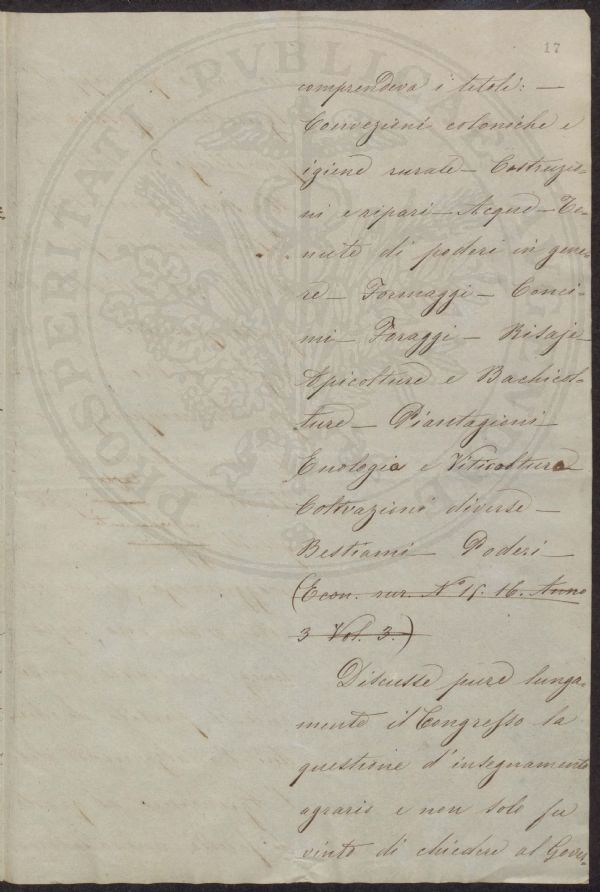 17
comprendeva i titoli: —
Convezioni coloniche e
igiene rurale — Costruzio-
ni e ripari — Acque — Te-
nute di poderi in gene-
re — Formaggi — Conci-
mi — Foraggi — Risaje —
Apicolture e Bachicol-
ture — Piantagioni —
Enologia e Viticoltura —
Coltivazioni diverse —
Bestiami — Poderi —
(Econ. rur. N.° 15. 16. Anno
3 Vol. 3.)
Discusse pure lunga-
mente il Congresso la
questione d'insegnamento
agrario e non solo fu
vinto di chiedere al Gover-
PROSPERITATI PVBLICAE AVGENDAE